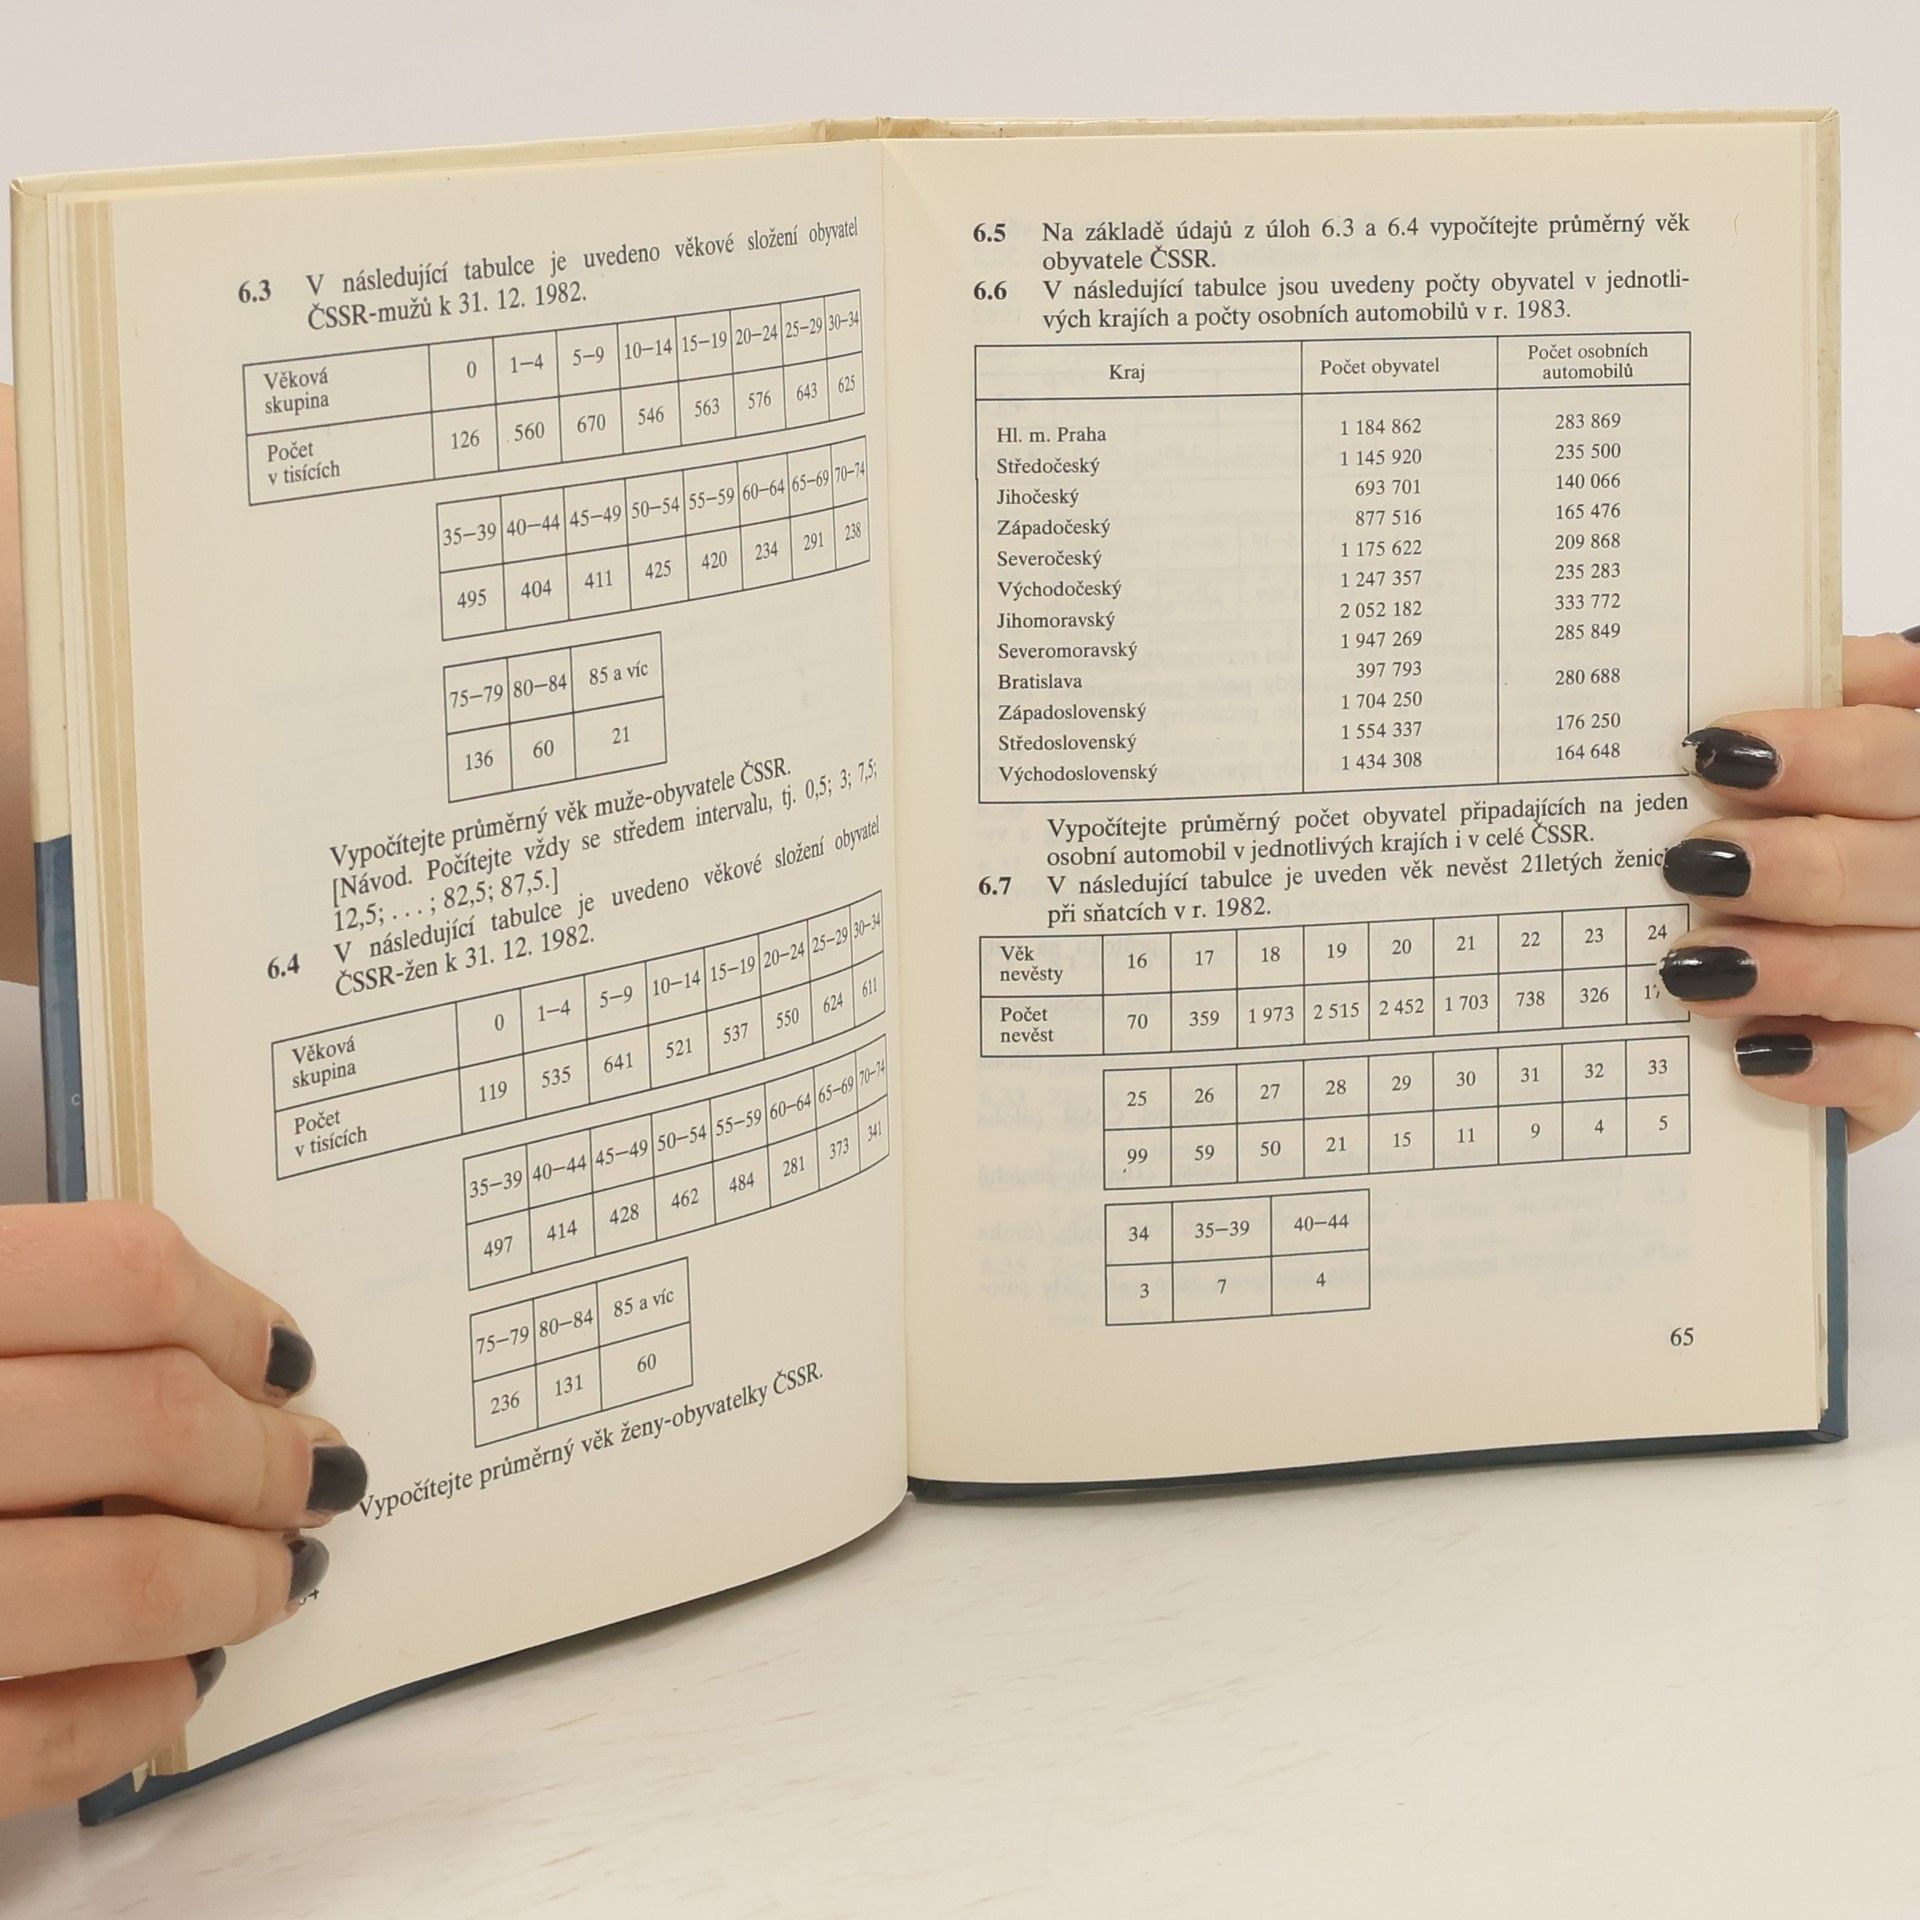 6.3 V následující tabulce je uvedeno věkové složení obyvatel
ČSSR-mužů k 31. 12. 1982.
Věková skupina 0 1–4 5–9 10–14 15–19 20–24 25–29 30–34
Počet v tisících 126 560 670 546 563 576 643 625
35–39 40–44 45–49 50–54 55–59 60–64 65–69 70–74
495 404 411 425 420 234 291 238
75–79 80–84 85 a víc
136 60 21
Vypočítejte průměrný věk muže-obyvatele ČSSR.
[Návod. Počítejte vždy se středem intervalu, tj. 0,5; 3; 7,5;
12,5; . . . ; 82,5; 87,5.]
6.4 V následující tabulce je uvedeno věkové složení obyvatel
ČSSR-žen k 31. 12. 1982.
Věková skupina 0 1–4 5–9 10–14 15–19 20–24 25–29 30–34
Počet v tisících 119 535 641 521 537 550 624 611
35–39 40–44 45–49 50–54 55–59 60–64 65–69 70–74
497 414 428 462 484 281 373 341
75–79 80–84 85 a víc
236 131 60
Vypočítejte průměrný věk ženy-obyvatelky ČSSR.
6.5 Na základě údajů z úloh 6.3 a 6.4 vypočítejte průměrný věk
obyvatele ČSSR.
6.6 V následující tabulce jsou uvedeny počty obyvatel v jednotli-
vých krajích a počty osobních automobilů v r. 1983.
Kraj Počet obyvatel Počet osobních automobilů
Hl. m. Praha 1 184 862 283 869
Středočeský 1 145 920 235 500
Jihočeský 693 701 140 066
Západočeský 877 516 165 476
Severočeský 1 175 622 209 868
Východočeský 1 247 357 235 283
Jihomoravský 2 052 182 333 772
Severomoravský 1 947 269 285 849
Bratislava 397 793
Západoslovenský 1 704 250 280 688
Středoslovenský 1 554 337 176 250
Východoslovenský 1 434 308 164 648
Vypočítejte průměrný počet obyvatel připadajících na jeden
osobní automobil v jednotlivých krajích i v celé ČSSR.
6.7 V následující tabulce je uveden věk nevěst 21letých
při sňatcích v r. 1982.
Věk nevěsty 16 17 18 19 20 21 22 23 24
Počet nevěst 70 359 1 973 2 515 2 452 1 703 738 326
25 26 27 28 29 30 31 32 33
99 59 50 21 15 11 9 4 5
34 35–39 40–44
3 7 4
65